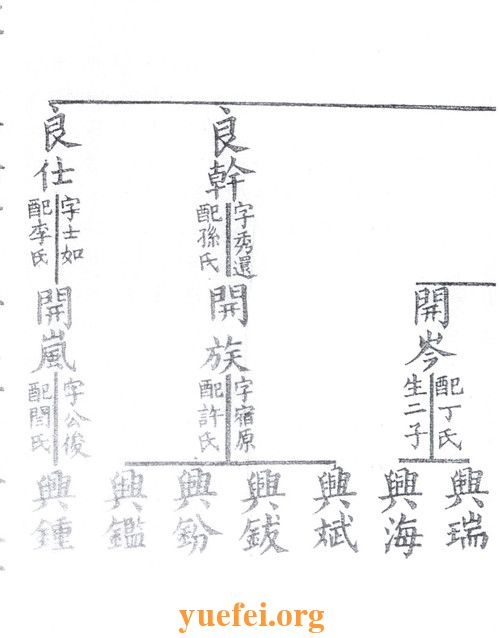 開岑
配丁氏
生二子
興瑞
興海
良幹
字秀還
配孫氏
開族
字宿原
配許氏
興斌
興鈸
興鈖
興鑑
良仕
字士如
配李氏
開嵐
字公俊
配閆氏
興鍾
yuefei.org